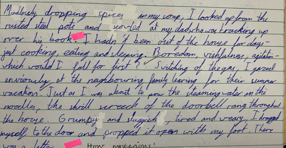 Mindlessly dropping spices in my soup, I looked up from the
rusted steel pot, and
over his books. I hadn't been out of the home for days -
just cooking, eating and sleeping. Boredom, wistfulness,
which would I fall for first? Sudden of these, I gazed
enviously at the neighbouring family leaving for their summer
vacation. Just as I was about to pour the steaming water on the
noodles, the shrill screech of the doorbell rang throughout
the home. Grumpy and sluggish, bored and weary, I dragged
myself to the door and propped it open with my foot. There
was a letter. How